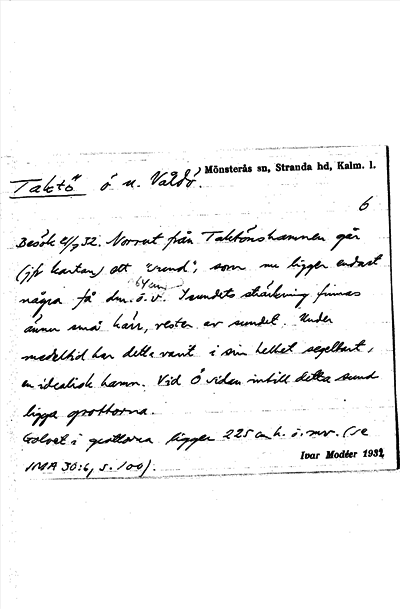 Mönsterås sn, Stranda hd, Kalm. l.
Taktö ö n. Valdö.
6
Besök 2/7 32. Norrut från Taktönshamnen går
(jfr kartan) ett "sund", som nu ligger endast
64 cm
några få dm. ö. v. I sundets sträckning finnas
ännu små kärr, rester av sundet. Under
medeltid har detta varit i sin helhet segelbart,
en idealisk hamn. Vid Ö sidan intill detta sund
ligga grottorna.
Golvet i grottorna ligger 225 cm h. ö. mv. (se
IMA 30:6, s. 100).
Ivar Modéer 1932